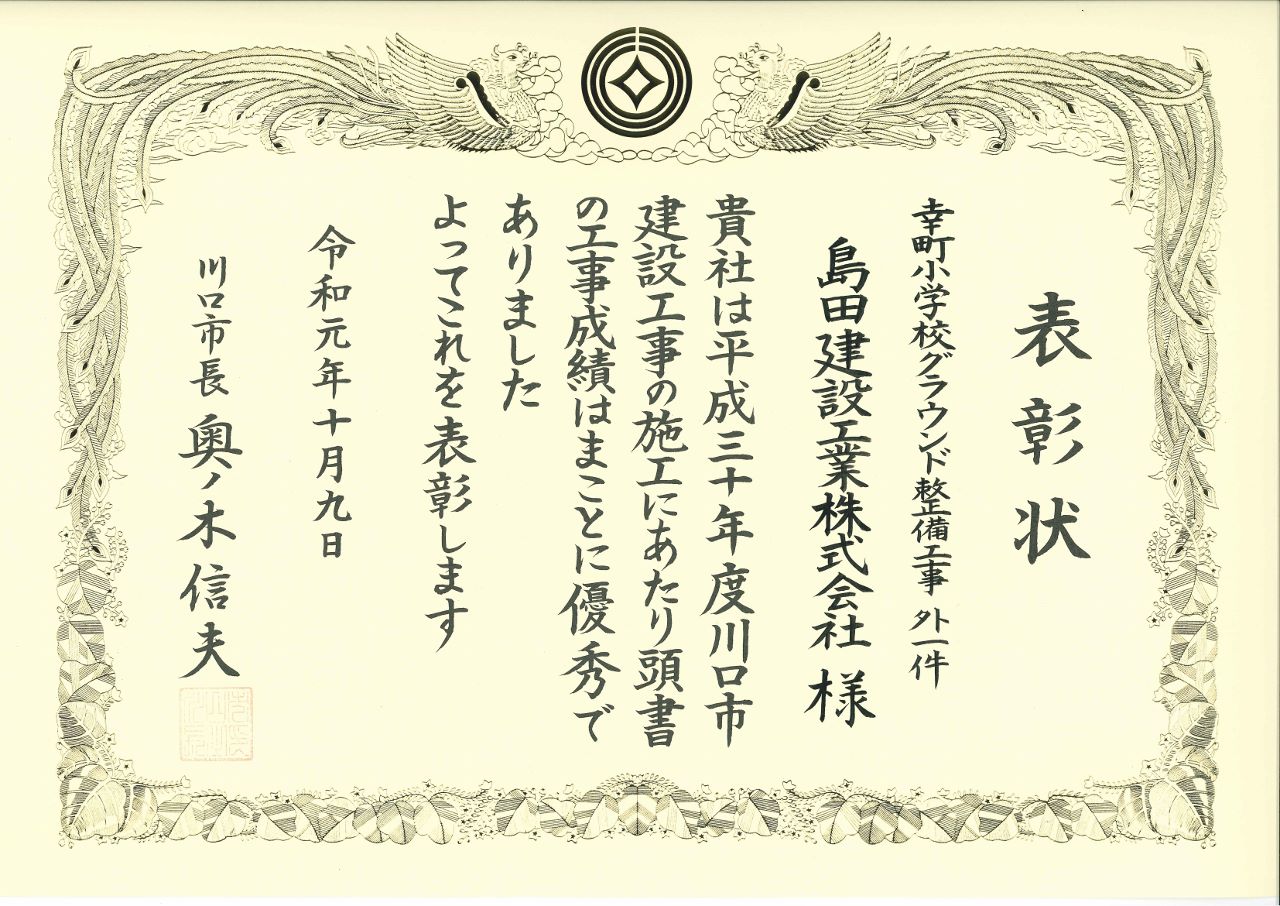 表彰状
幸町小学校グラウンド整備工事 外一件
島田建設工業株式会社 様
貴社は平成三十年度川口市
建設工事の施工にあたり頭書
の工事成績はまことに優秀で
ありました
よってこれを表彰します
令和元年十月九日
川口市長 奥ノ木信夫